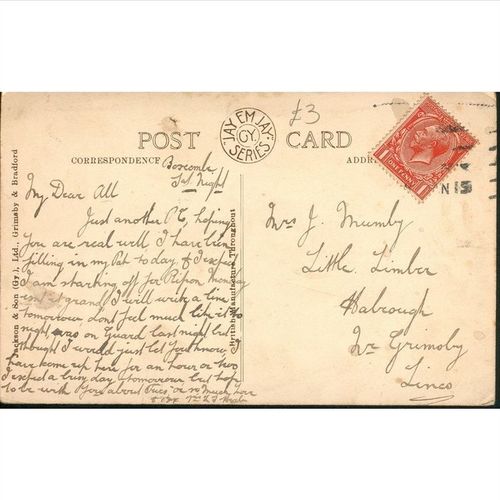 £3
POST CARD
JAY EM JAY
GY.
SERIES
CORRESPONDENCE
ONE PENNY
Jackson & Son (Gy.), Ltd., Grimsby & Bradford
British Manufacture Throughout
Boscombe
Sat Night
My Dear All
Just another PC, hoping
you are real well I have been
filling in my Pap to day & I expect
I am starting off for Ripon Monday
isnt it grand I will write a line
tomorrow dont feel much like it to
night was on Guard last night but
thought I would just let you know
have come up here for an hour or two
I expect a busy day tomorrow but hope
to be with you about Tues or so Much Love
Mrs J. Mumby
Little Limber
Habrough
Nr Grimsby
Lincs